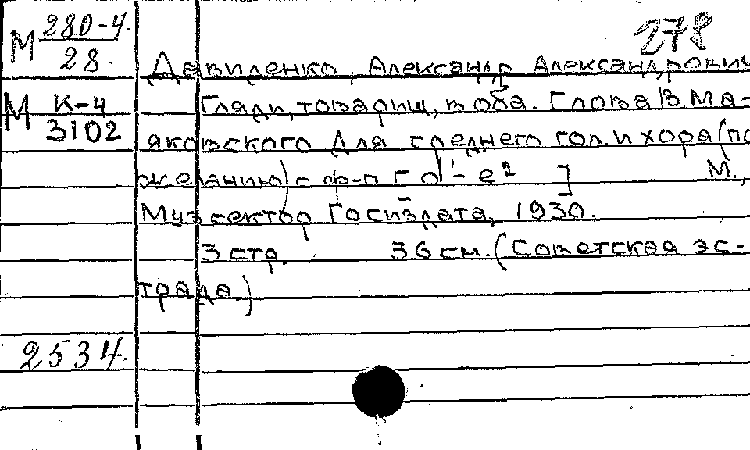 М 280-4
28
278
Давиденко, Александр Александрович
М К-4
3102
Гляди, товарищ, в оба. Слова В Ма-
яковского Для среднего гол. и хора (по
желанию) с ф-п [ d¹- e² ] М.,
Музсектор Госиздата, 1930.
3 стр. 36 см. (Советская эс-
трада.)
2534.